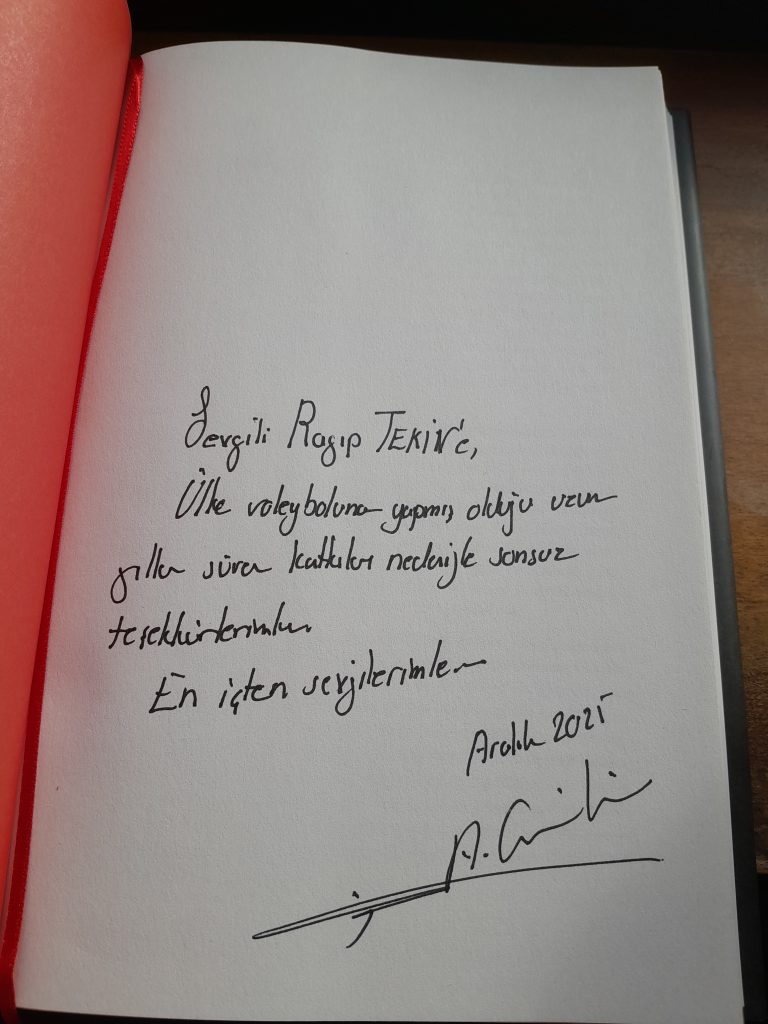 Sevgili Ragıp TEKİN'e,
Ülke voleyboluna yapmış olduğu uzun
yıllar süren katkıları nedeniyle sonsuz
teşekkürlerimle.
En içten sevgilerimle
Aralık 2025
A.